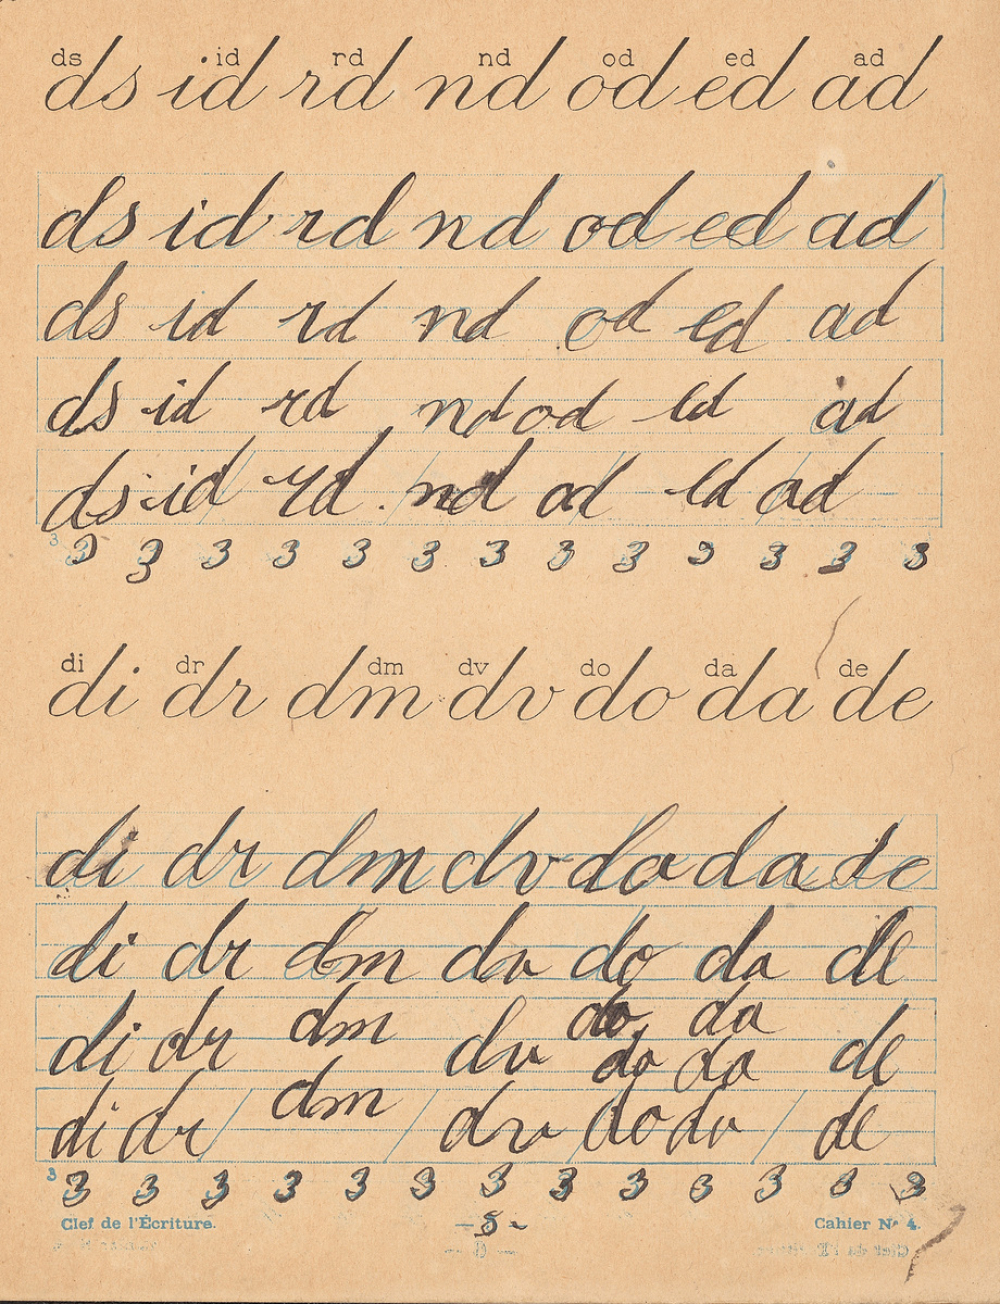 ds id rd nd od ed ad
ds id rd nd od ed ad
ds id rd nd od ed ad
ds id rd nd od ed ad
ds id rd nd od ed ad
ds id rd nd od ed ad
3 3 3 3 3 3 3 3 3 3 3 3 3 3
di dr dm dv do da de
di dr dm dv do da de
di dr dm dv do da de
di dr dm dv do da de
do da
di dr dm dv do da de
di dr dm dv do da de
3 3 3 3 3 3 3 3 3 3 3 3 3 3
Clef de l'Écriture. — 5 — Cahier Nº 4.